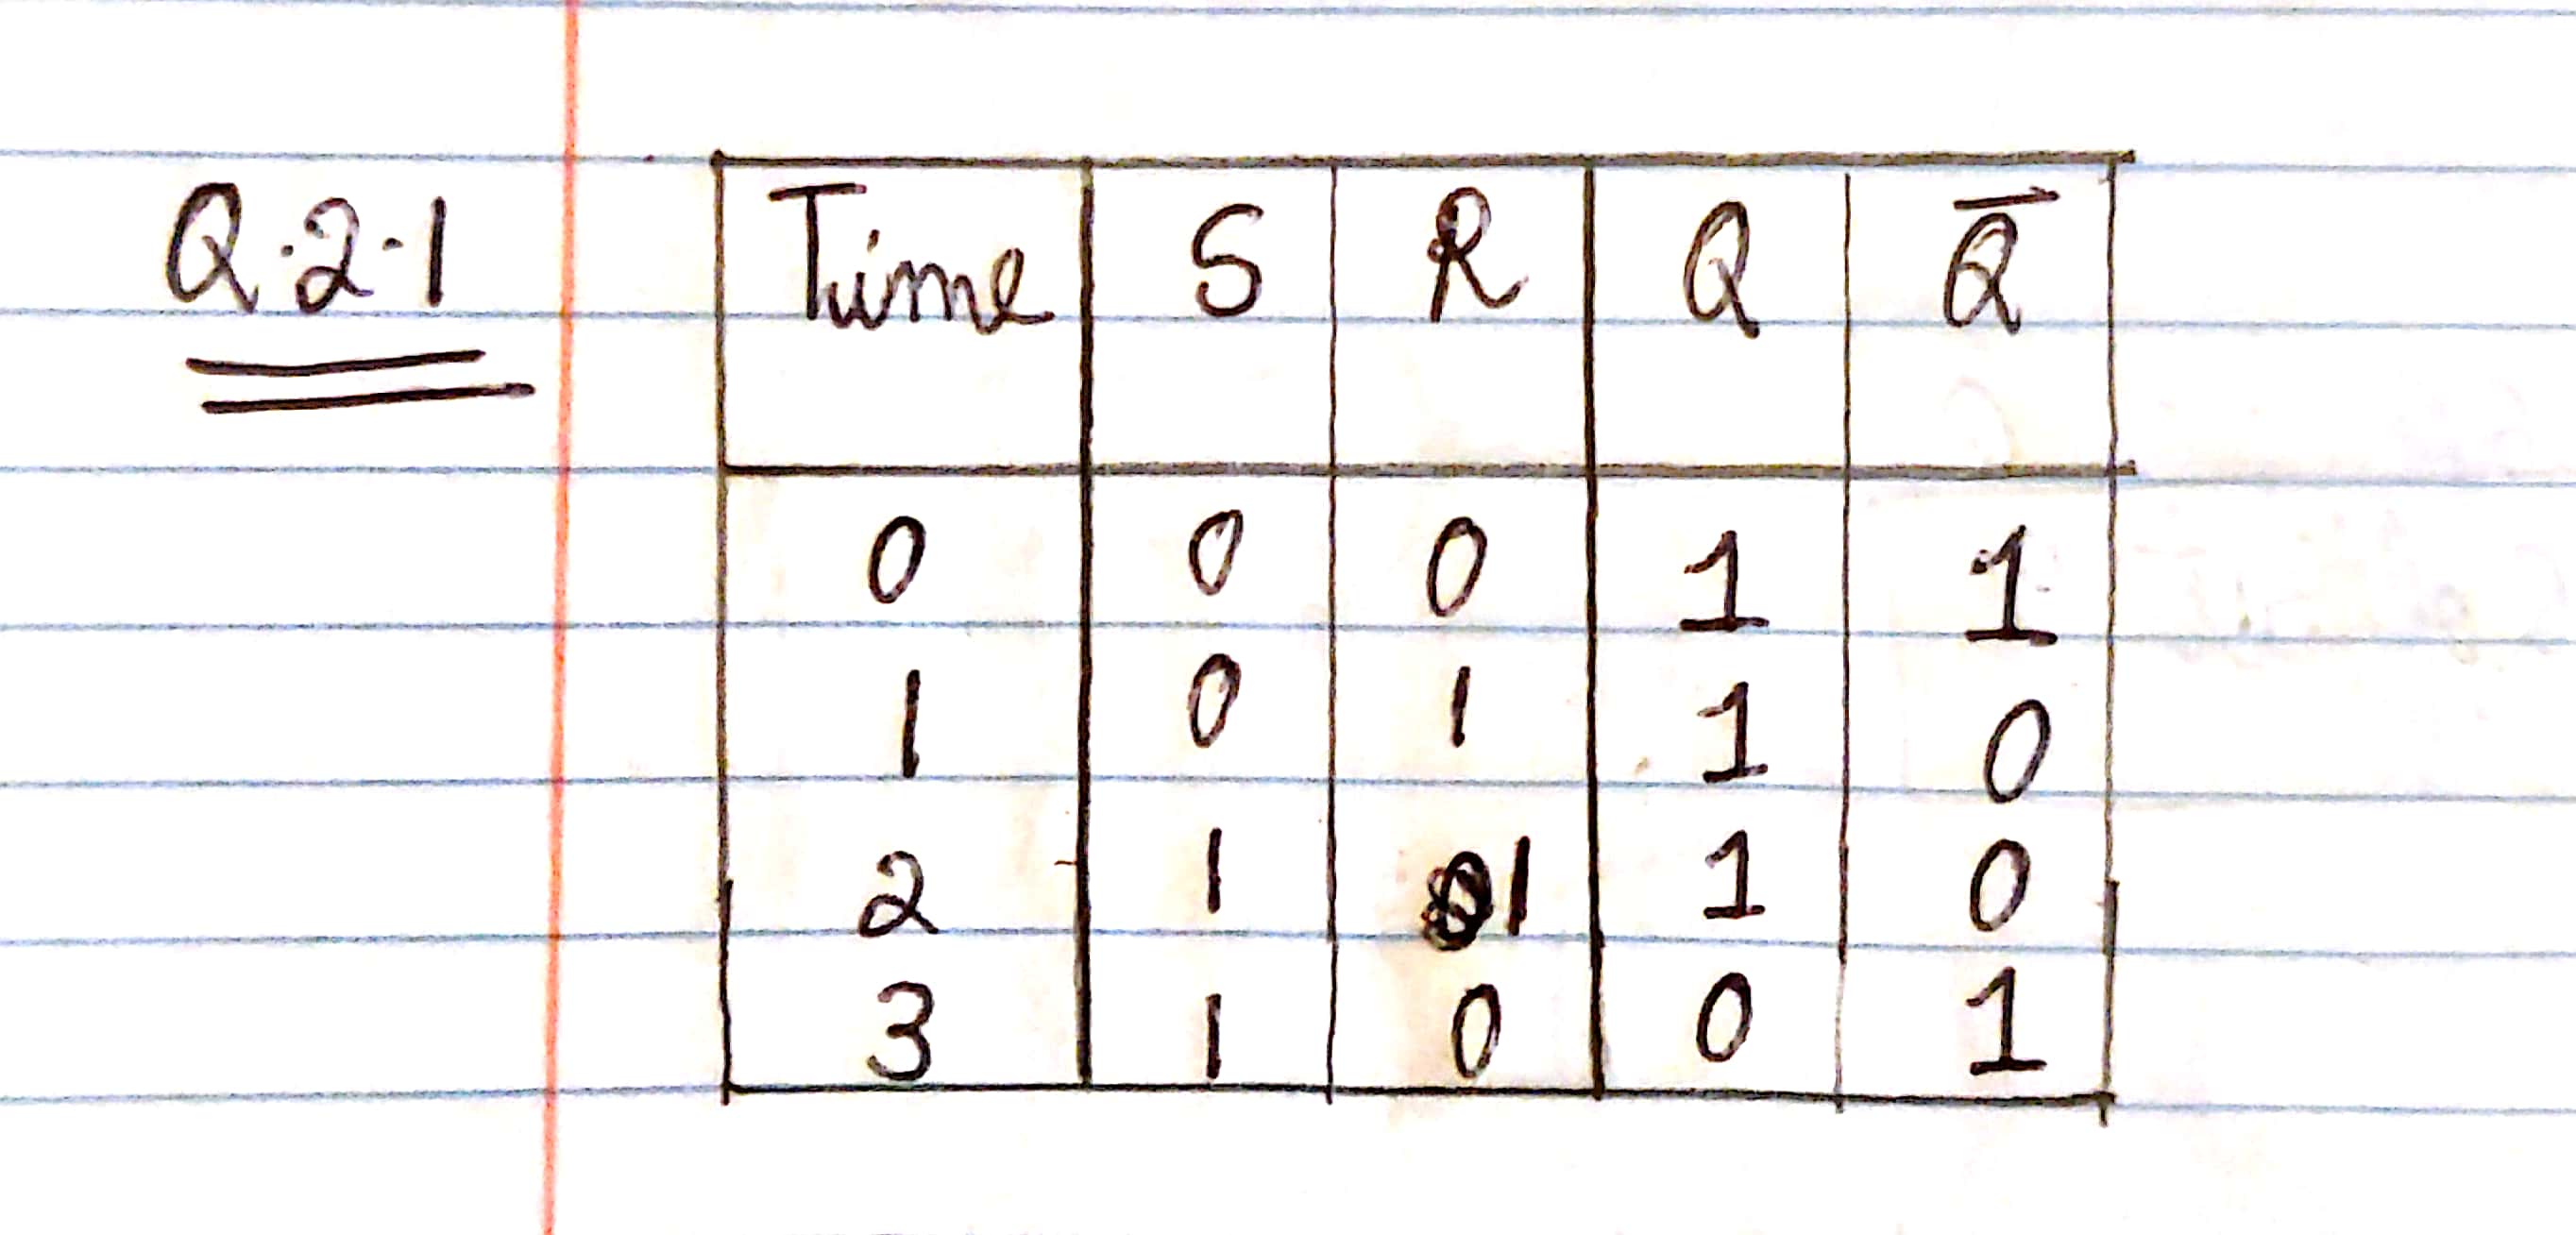 Q.2.1 Time S R Q Q̅
0 0 0 1 1
1 0 1 1 0
2 1 1 1 0
3 1 0 0 1